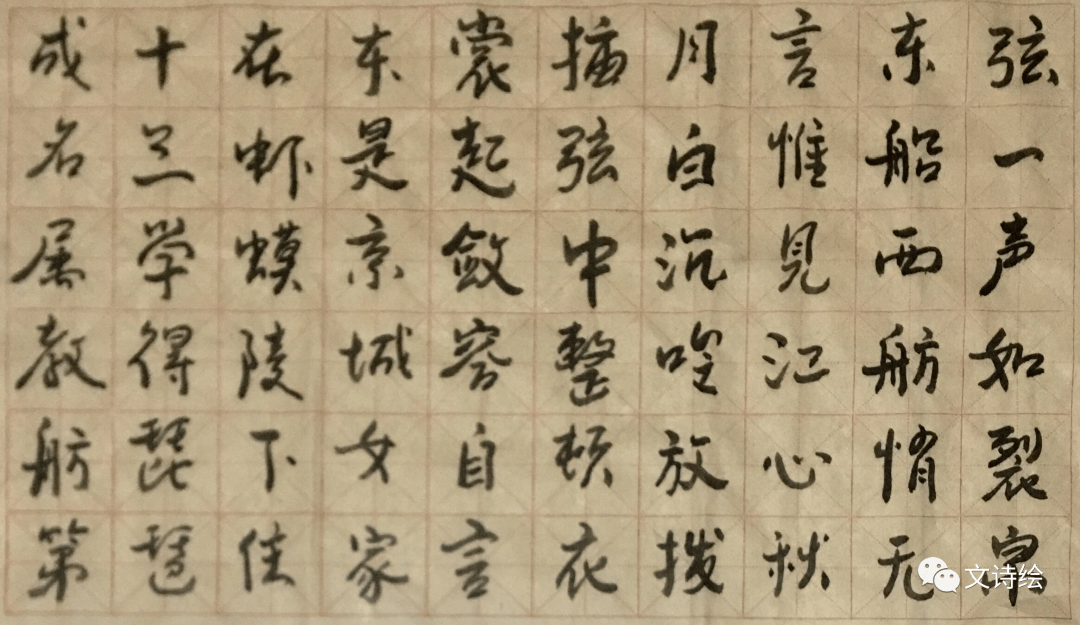 弦一声如裂帛
东船西舫悄无
言惟见江心秋
月白沉唫放拨
插弦中整顿衣
裳起敛容自言
本是京城女家
在虾蟆陵下住
十三学得琵琶
成名属教舫第
文诗绘